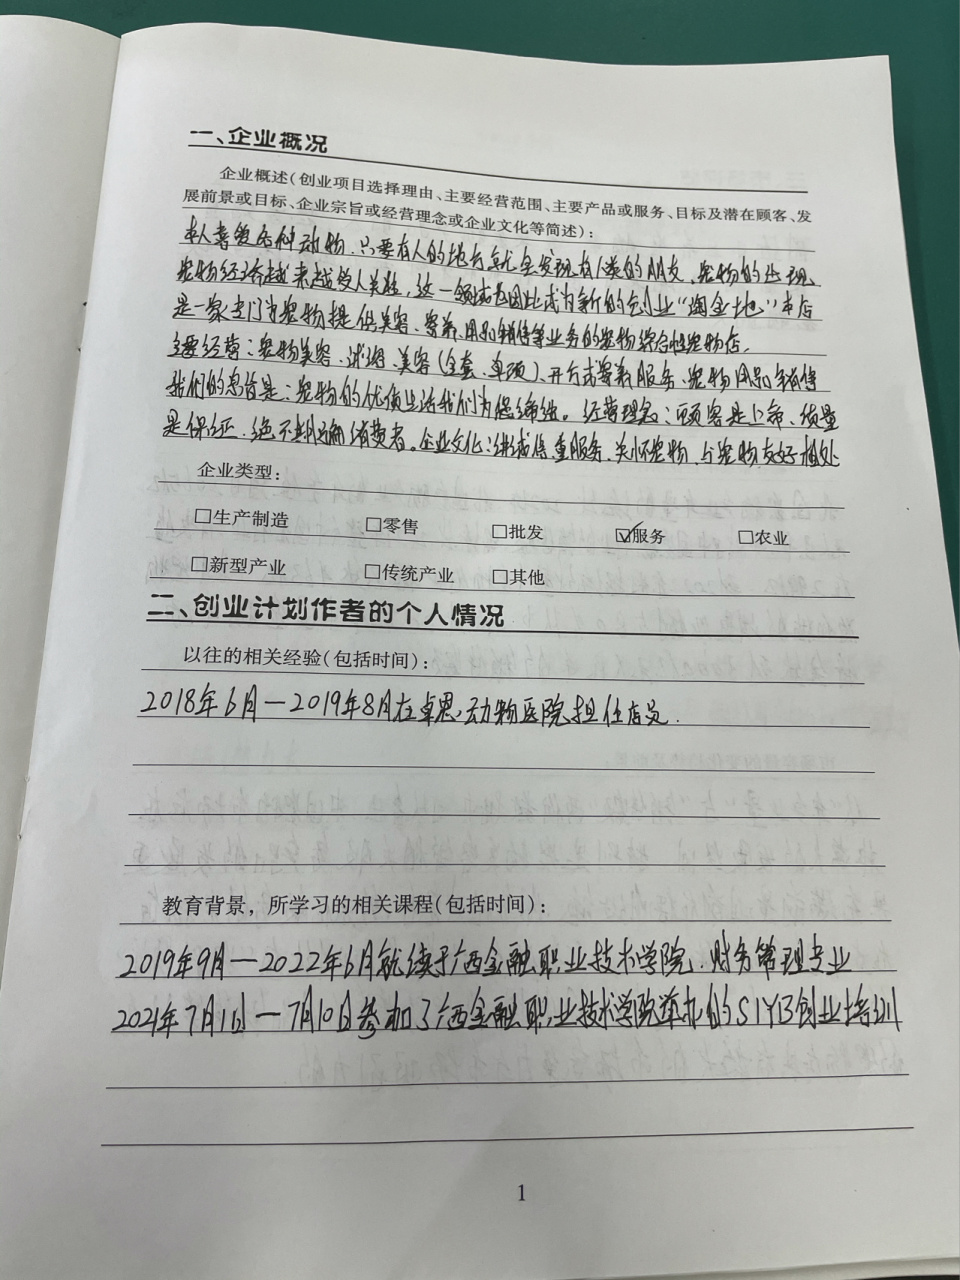 一、企业概况
企业概述(创业项目选择理由、主要经营范围、主要产品或服务、目标及潜在顾客、发
展前景或目标、企业宗旨或经营理念或企业文化等简述):
本人喜爱各种动物,只要有人的地方就会发现有人类的朋友,宠物的出现,
宠物经济越来越受人关注,这一领域也因此成为新的创业“淘金地”本店
是一家专门为宠物提供美容、寄养、用品销售等业务的宠物综合性宠物店,
主要经营:宠物美容、洗澡、美容(全套、单项)、开放式寄养服务、宠物用品销售
我们的宗旨是:宠物的优质生活我们为您缔造。经营理念:顾客是上帝、质量
是保证,绝不欺骗消费者。企业文化:讲诚信重服务,关怀宠物,与宠物友好相处
企业类型:
□生产制造 □零售 □批发 ☑服务 □农业
□新型产业 □传统产业 □其他
二、创业计划作者的个人情况
以往的相关经验(包括时间):
2018年6月—2019年8月在卓思动物医院担任店员.
教育背景,所学习的相关课程(包括时间):
2019年9月—2022年6月就读于广西金融职业技术学院.财务管理专业
2021年7月1日—7月10日参加了广西金融职业技术学院举办的SIYB创业培训
1